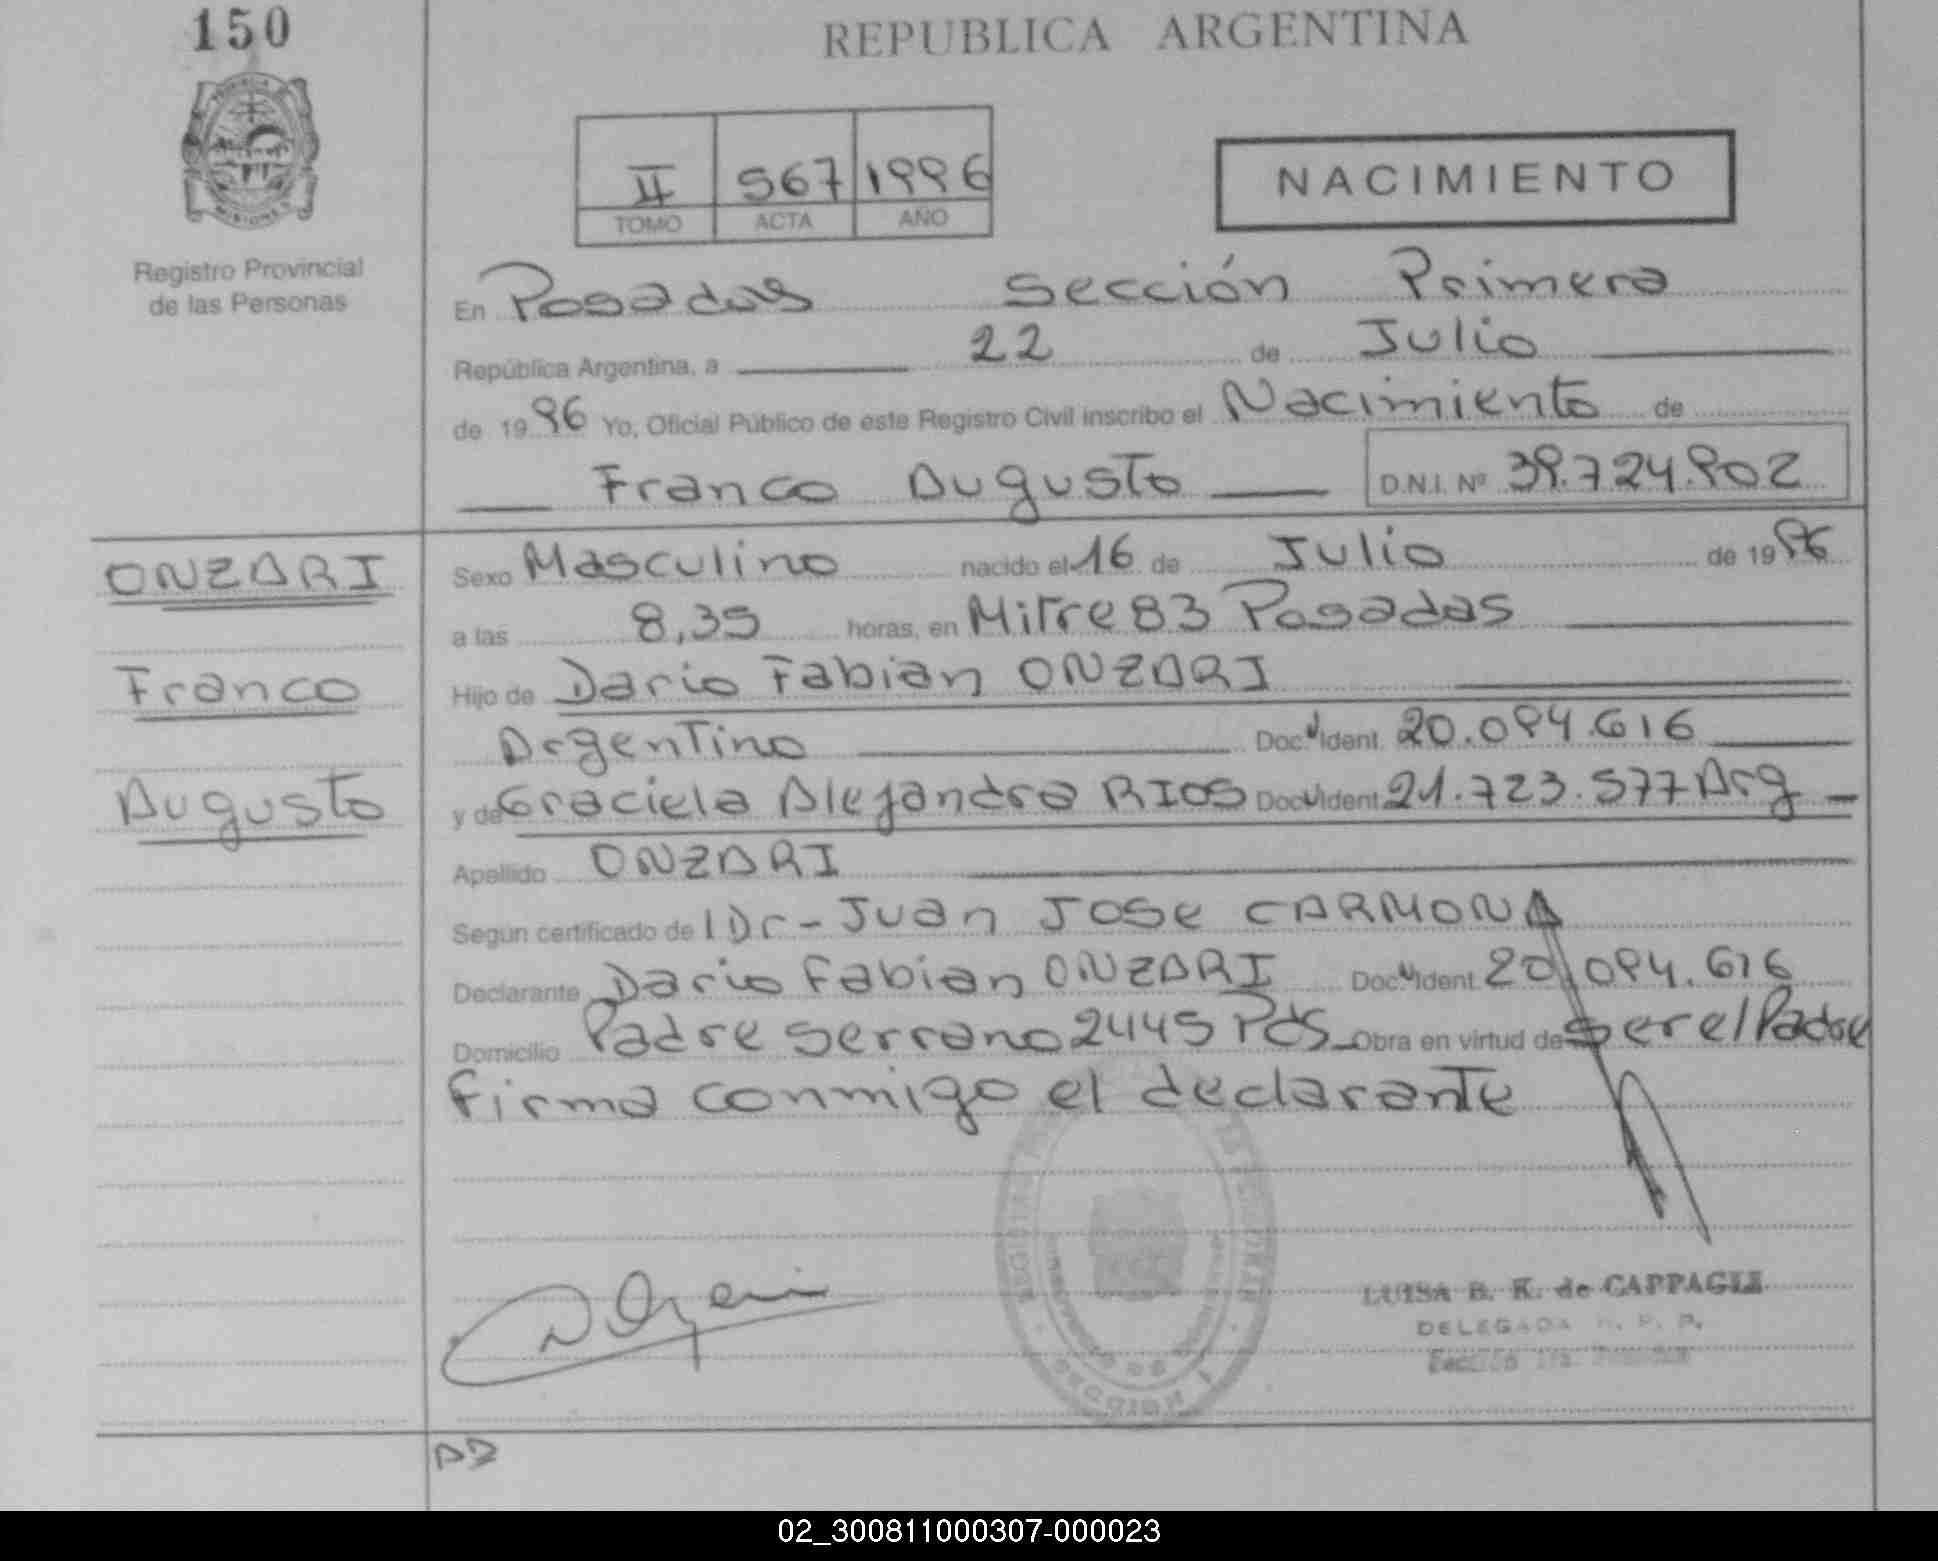 150
REPUBLICA ARGENTINA
II 567 1996
TOMO ACTA AÑO
NACIMIENTO
MISIONES
Registro Provincial
de las Personas
En Posadas Sección Primera
República Argentina, a 22 de Julio
de 1996 Yo, Oficial Público de este Registro Civil inscribo el Nacimiento de
Franco Augusto D.N.I. Nº 39.724.902
ONZARI
Franco
Augusto
Sexo Masculino nacido el 16 de Julio de 1996
a las 8,35 horas, en Mitre 83 Posadas
Hijo de Dario Fabian ONZARI
Argentino Doc. Ident. 20.094.616
y de Graciela Alejandra RIOS Doc. Ident. 21.723.577 Arg
Apellido ONZARI
Según certificado del Dr- Juan Jose CARMONA
Declarante Dario Fabian ONZARI Doc. Ident. 20.094.616
Domicilio Padre Serrano 2445 Pds Obra en virtud de ser el Padre
firma conmigo el declarante
LUISA B. K. de CAPPAGLI
DELEGADA R. P. P.
Sección 1ra.
02_300811000307-000023